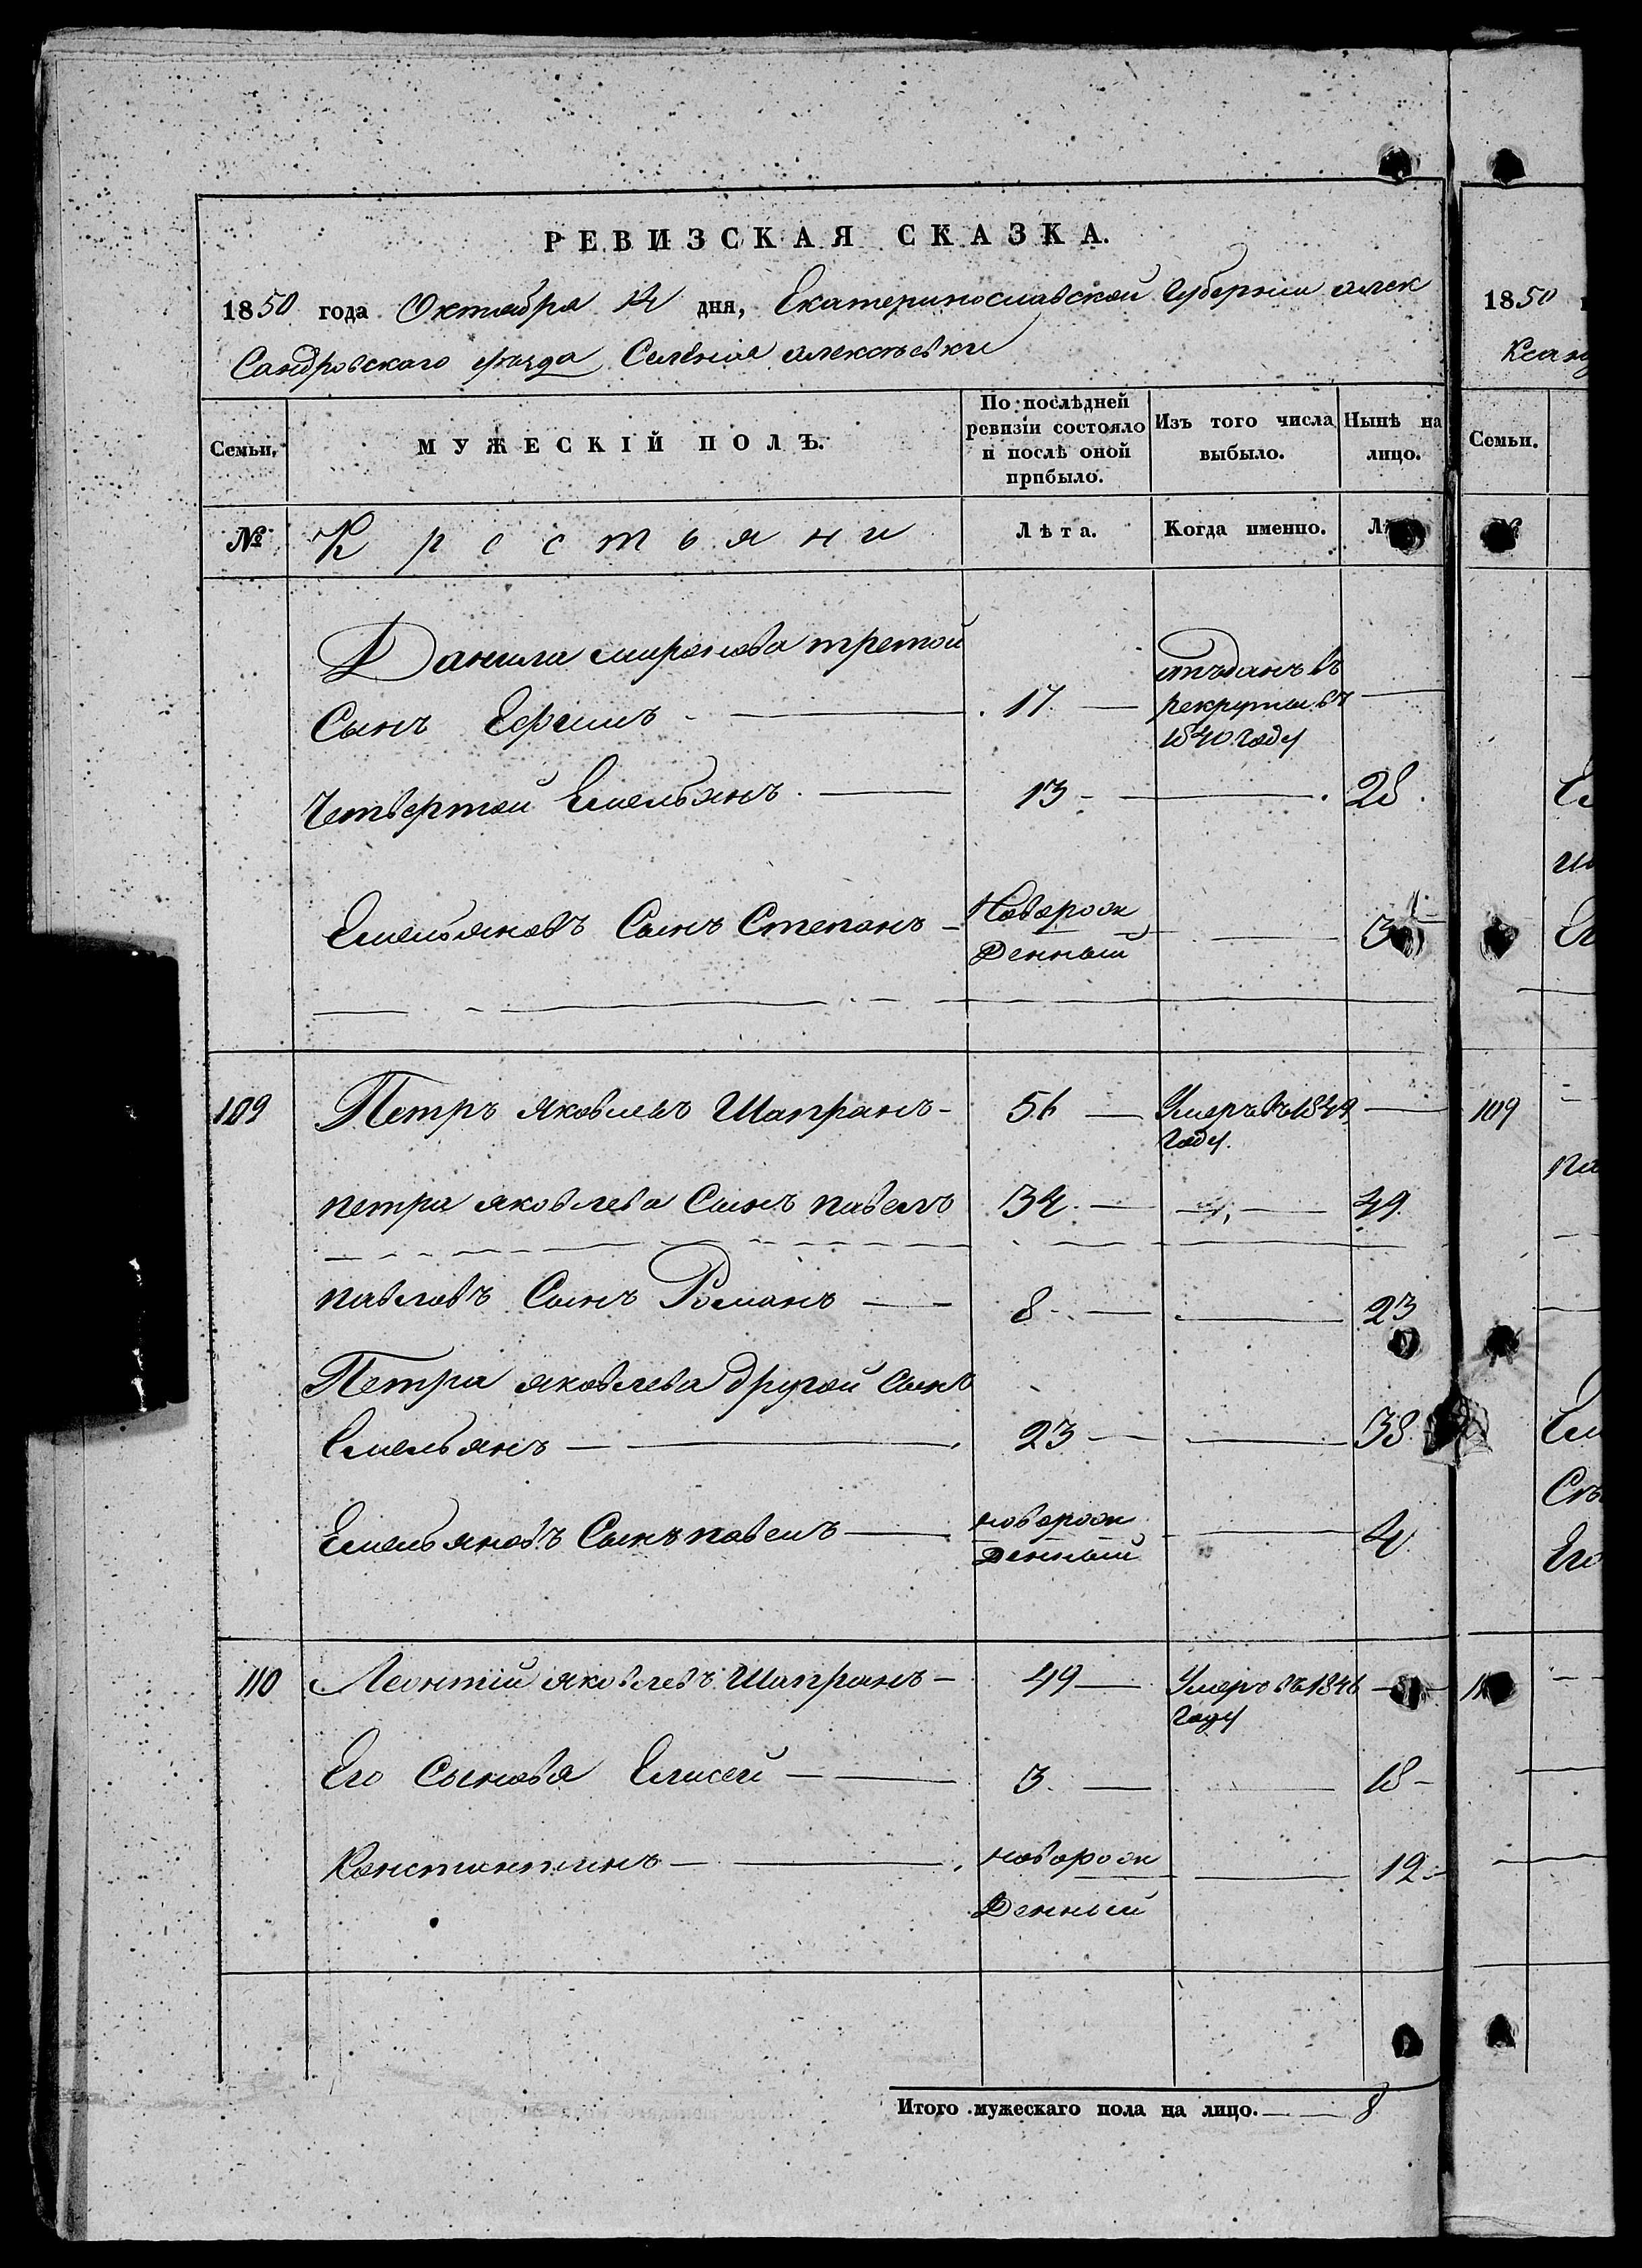 РЕВИЗСКАЯ СКАЗКА.
1850 года Октября 14 дня, Екатеринославской Губернии алек
Сандровского уѣзда Селѣния алексѣевки
Семьи.
МУЖЕСКІЙ ПОЛЪ.
По послѣдней ревизіи состояло и послѣ оной прибыло.
Изъ того числа выбыло.
Нынѣ на лицо.
№
Крестьяни
Лѣта.
Когда именно.
Данила миронова третой
Сынъ Ефимъ 17 отъданъ въ рекруты въ 1840 году
Четвертой Емельянъ 13 28
Емельяновъ Сынъ Степанъ Новорож Денный 3
109 Петръ яковлевъ Шапранъ 56 Умеръ въ 1849 году
петра яковлева Сынъ павелъ 34 49
павловъ Сынъ Романъ 8 23
Петра яковлева другой сынъ
Емельянъ 23 38
Емельяновъ Сынъ павелъ новорож Денный 4
110 Леонтій яковлевъ Шапранъ 49 Умеръ въ 1846 году
Его Сыновя Елисей 3 18
Константинъ новорож Денный 12
Итого мужескаго пола на лицо. 8
1850
Ксанд
Семьи.
109